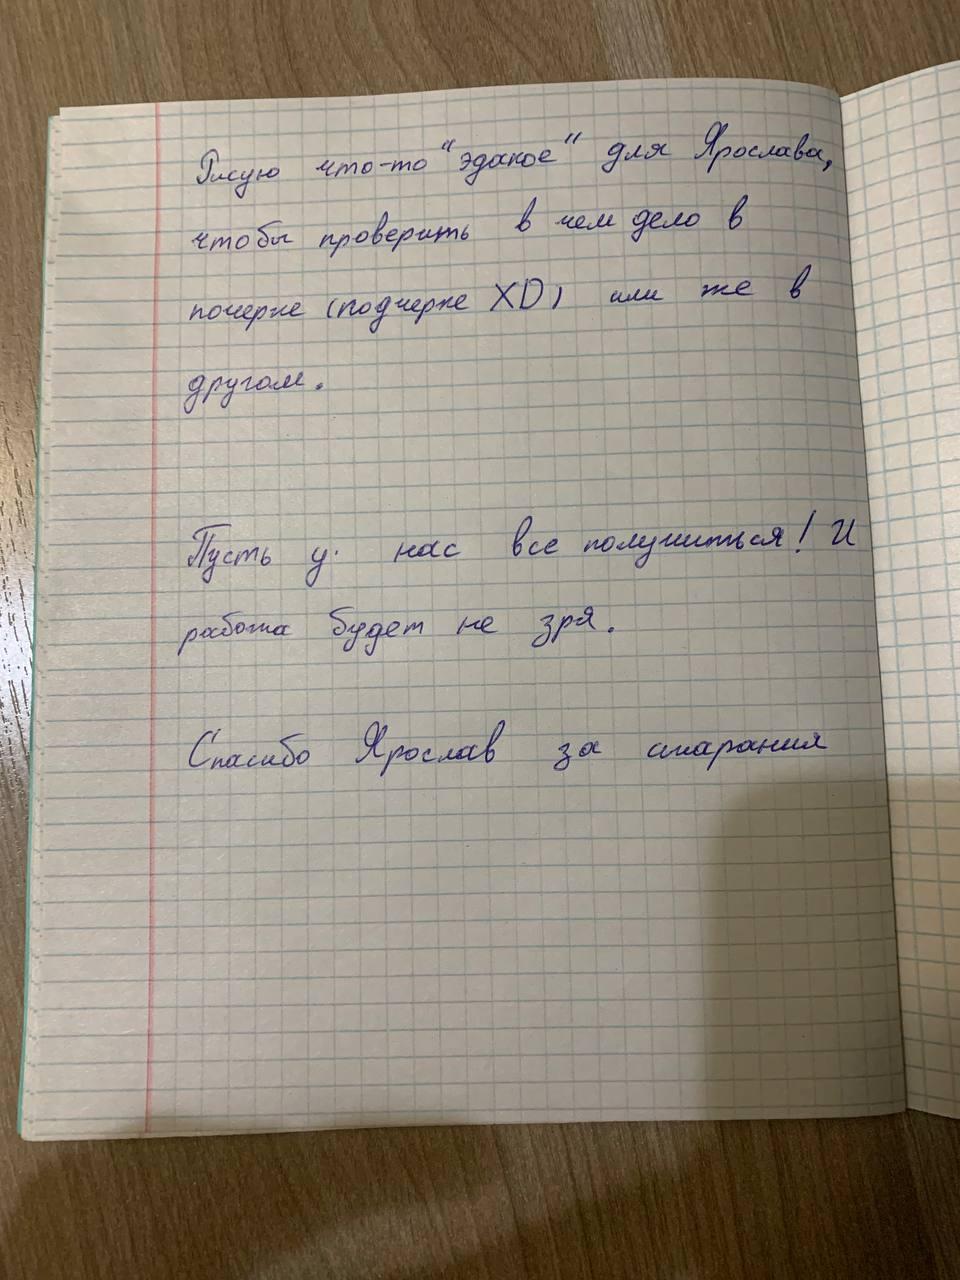 Рисую что-то "эдакое" для Ярослава,
чтобы проверить в чем дело в
почерке (подчерке XD) или же в
другом.
Пусть у нас все получиться! И
работа будет не зря.
Спасибо Ярослав за старания